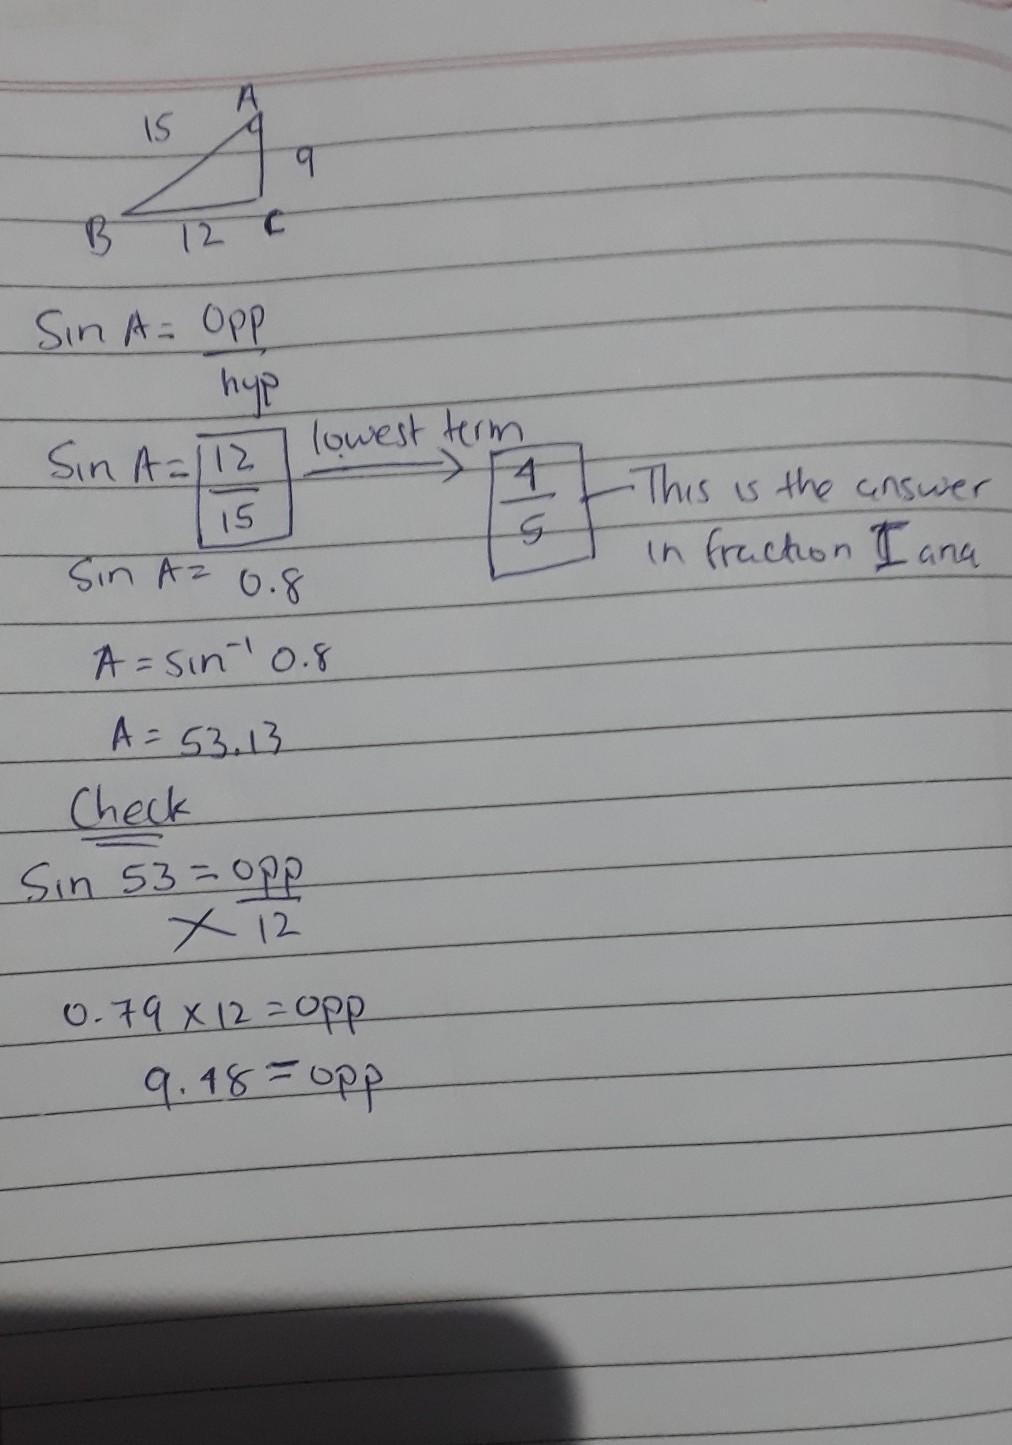 A
15
9
B
12
C
Sin A = opp
hyp
Sin A = 12
15
lowest term
4
5
This is the answer
in fraction I ana
Sin A = 0.8
A = sin⁻¹ 0.8
A = 53.13
Check
Sin 53 = opp
× 12
0.79 × 12 = opp
9.48 = opp